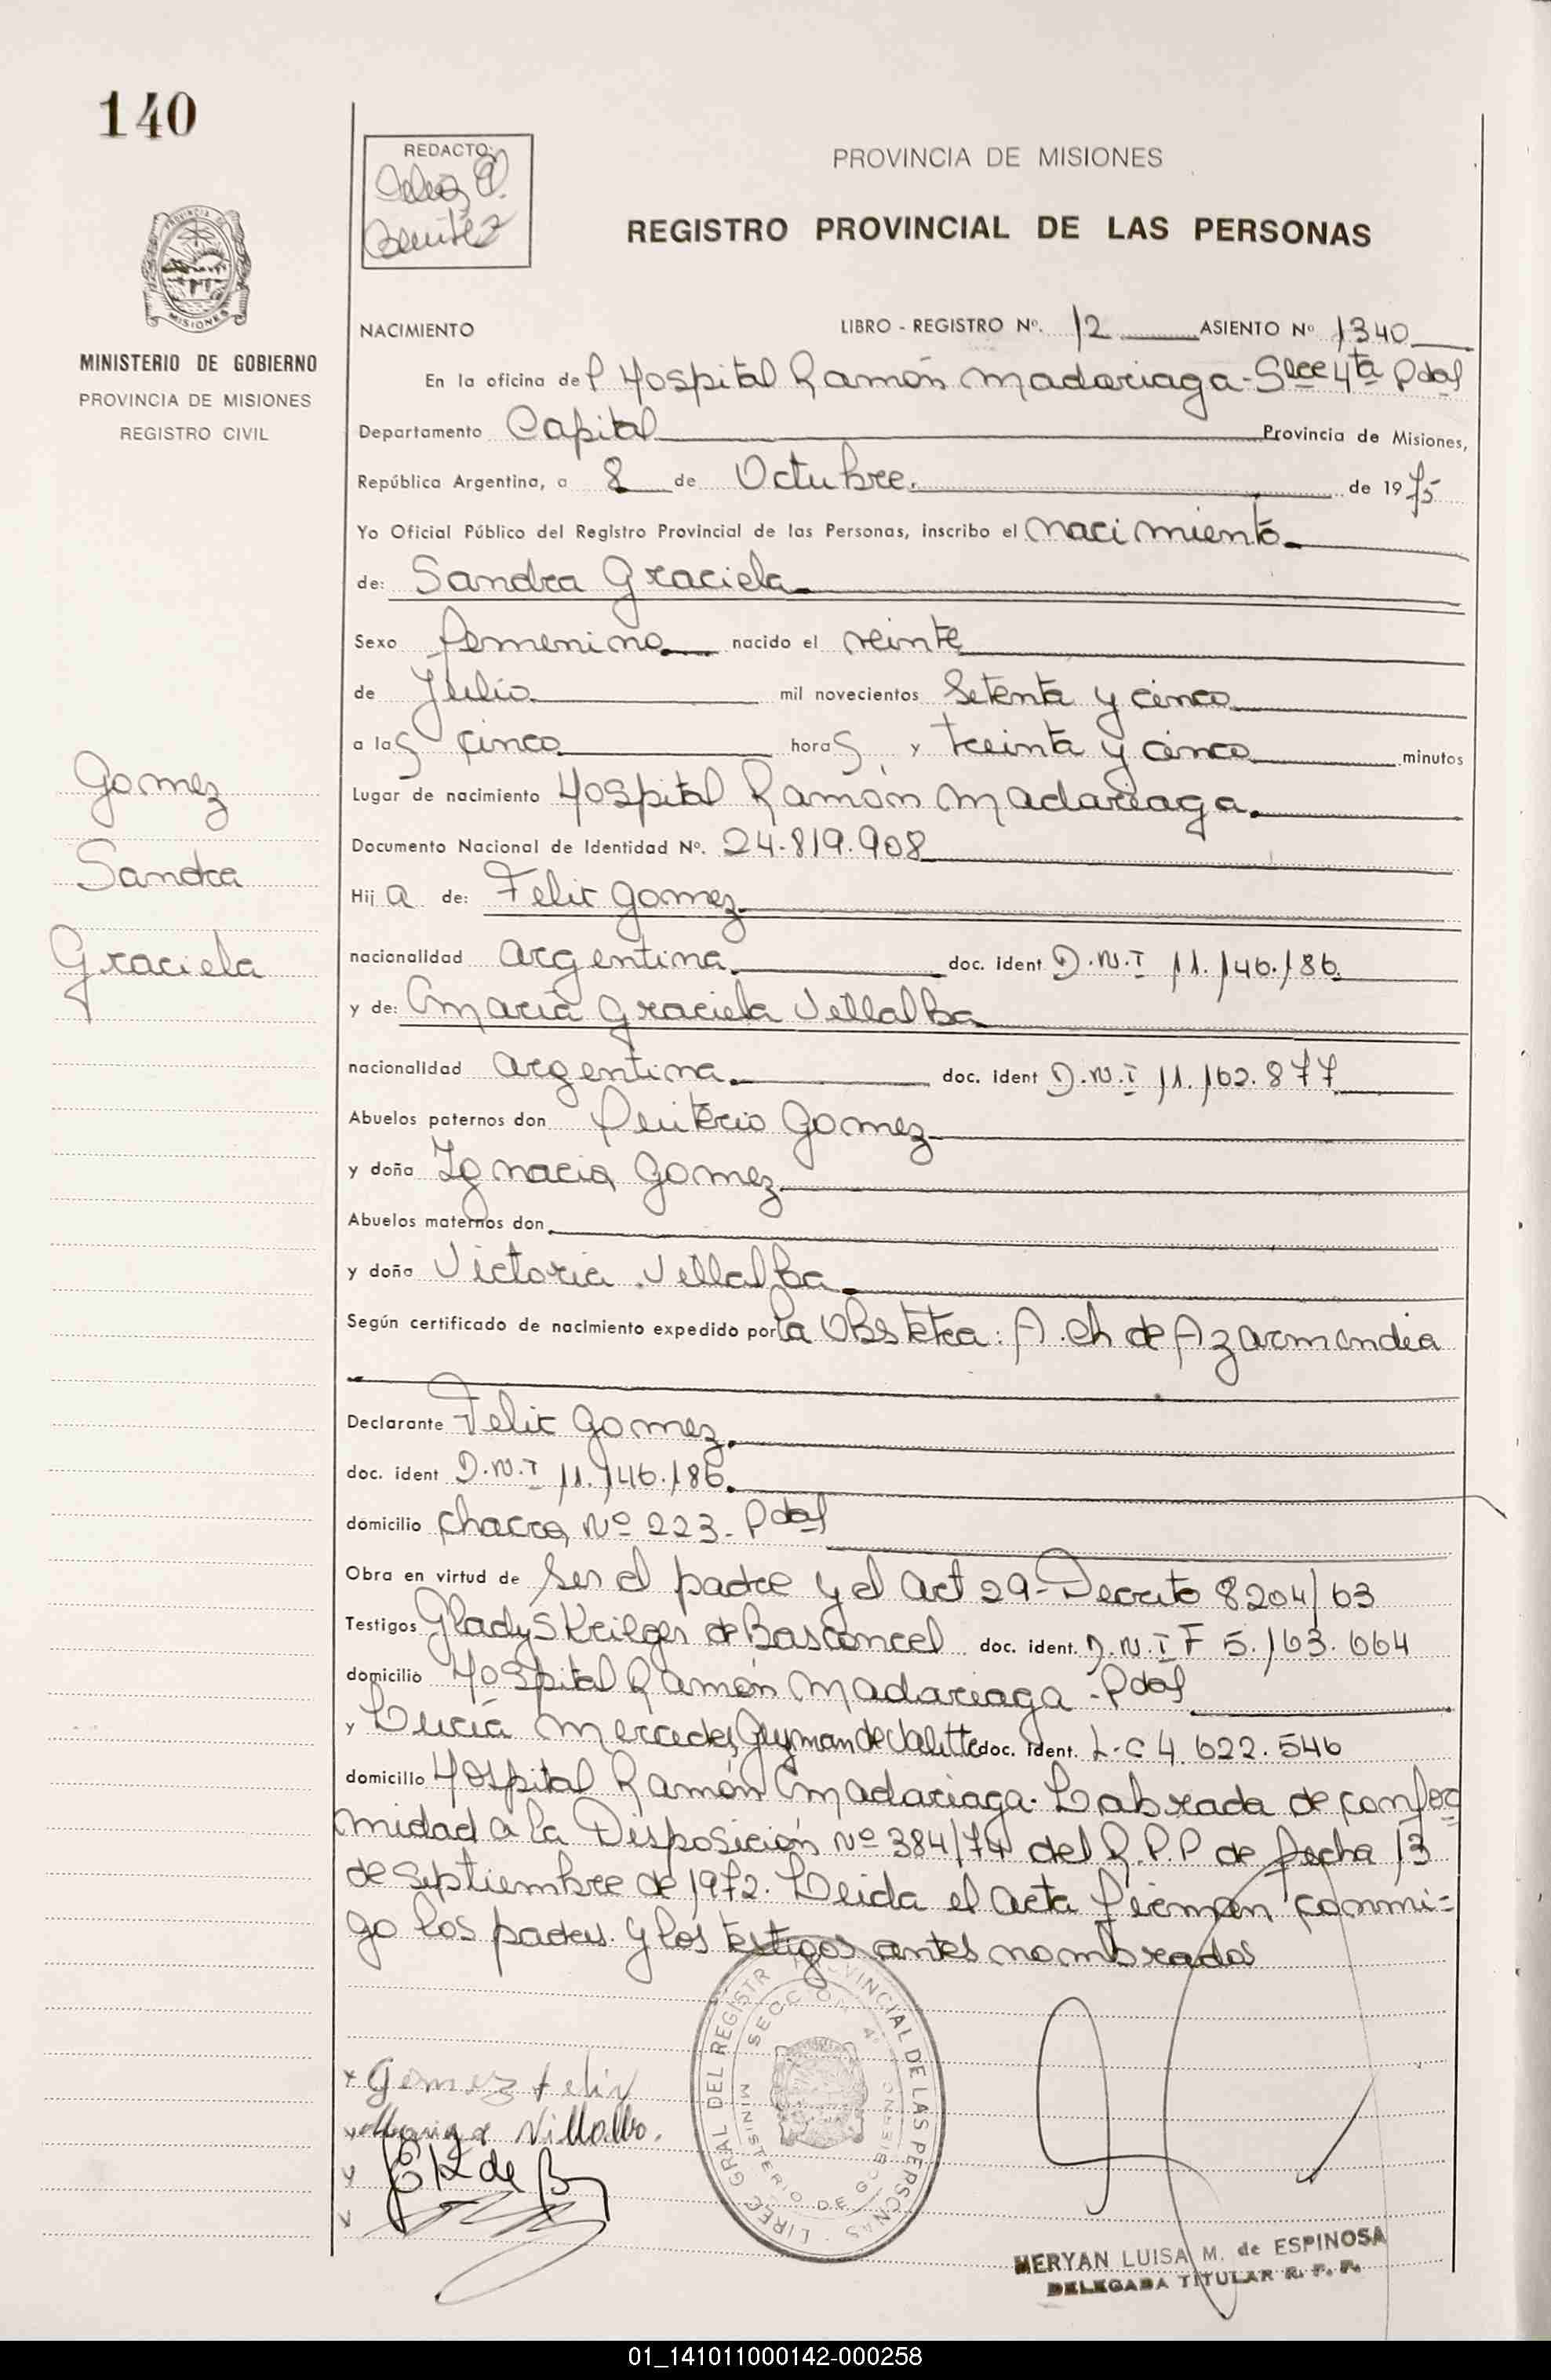 140
REDACTO:
Benitez
PROVINCIA DE MISIONES
REGISTRO PROVINCIAL DE LAS PERSONAS
MISIONES
MINISTERIO DE GOBIERNO
PROVINCIA DE MISIONES
REGISTRO CIVIL
NACIMIENTO LIBRO - REGISTRO Nº. 12 ASIENTO Nº 1340
En la oficina del Hospital Ramón Madariaga - Slce 4ta Pdas
Departamento Capital Provincia de Misiones,
República Argentina, a 8 de Octubre. de 1975
Yo Oficial Público del Registro Provincial de las Personas, inscribo el nacimiento
de: Sandra Graciela
Sexo femenino nacido el veinte
de Julio mil novecientos Setenta y cinco
a las cinco horas y treinta y cinco minutos
Lugar de nacimiento Hospital Ramón Madariaga.
Documento Nacional de Identidad Nº. 24.819.908
Hija de: Felix Gomez
nacionalidad argentina doc. ident D.N.I 11.146.186.
y de: Maria Graciela Villalba
nacionalidad argentina. doc. ident D.N.I 11.162.877
Abuelos paternos don Gomez
y doña Ignacia Gomez
Abuelos maternos don
y doña Victoria Villalba
Según certificado de nacimiento expedido por la Obstetra: A. ch de Azarmendia
Declarante Felix Gomez.
doc. ident D.N.I 11.146.186.
domicilio chacra Nº 223 - Pdas
Obra en virtud de ser el padre y el Art 29 - Decreto 8204/63
Testigos Gladys de Basconcel doc. ident. D.N.I F 5.163.664
domicilio Hospital Ramón Madariaga - Pdas
y Lucía Mercedes Guzman de doc. ident. L.C 4.622.546
domicilio Hospital Ramón Madariaga. Labrada de confor
midad a la Disposición Nº 384/74 del R.P.P de fecha 13
de Septiembre de 1972. Leida el acta firman conmi=
go los padres y los testigos antes nombrados
Gomez Felix
Villalba.
K de B
DIREC GRAL DEL REGISTR PROVINCIAL DE LAS PERSONAS
SECCION 4ª
MINISTERIO DE GOBIERNO
MERYAN LUISA M. de ESPINOSA
DELEGADA TITULAR R. P. P.
Gomez
Sandra
Graciela
01_141011000142-000258